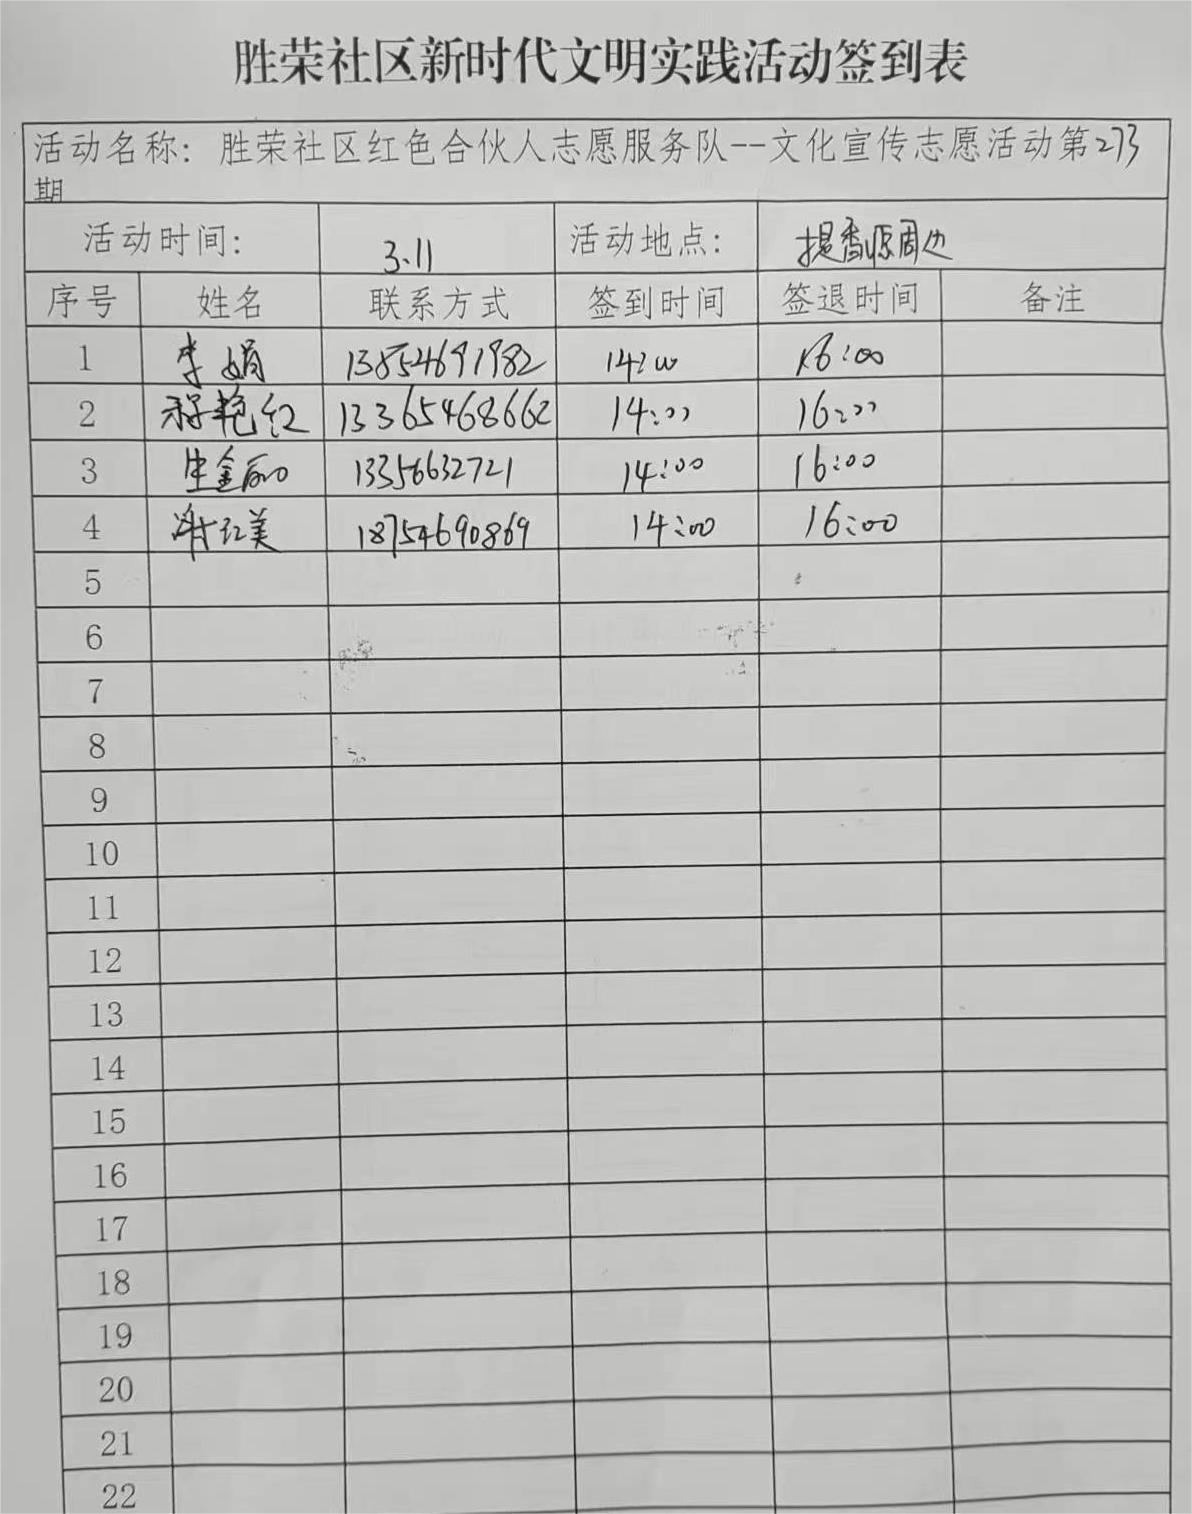 胜荣社区新时代文明实践活动签到表
活动名称：胜荣社区红色合伙人志愿服务队--文化宣传志愿活动第273
期
活动时间： 3.11 活动地点： 提香源周边
序号 姓名 联系方式 签到时间 签退时间 备注
1 李娟 13854691982 14:00 16:00
2 程艳红 13365468662 14:00 16:00
3 生金丽 13356632721 14:00 16:00
4 谢红美 18754690869 14:00 16:00
5
6
7
8
9
10
11
12
13
14
15
16
17
18
19
20
21
22